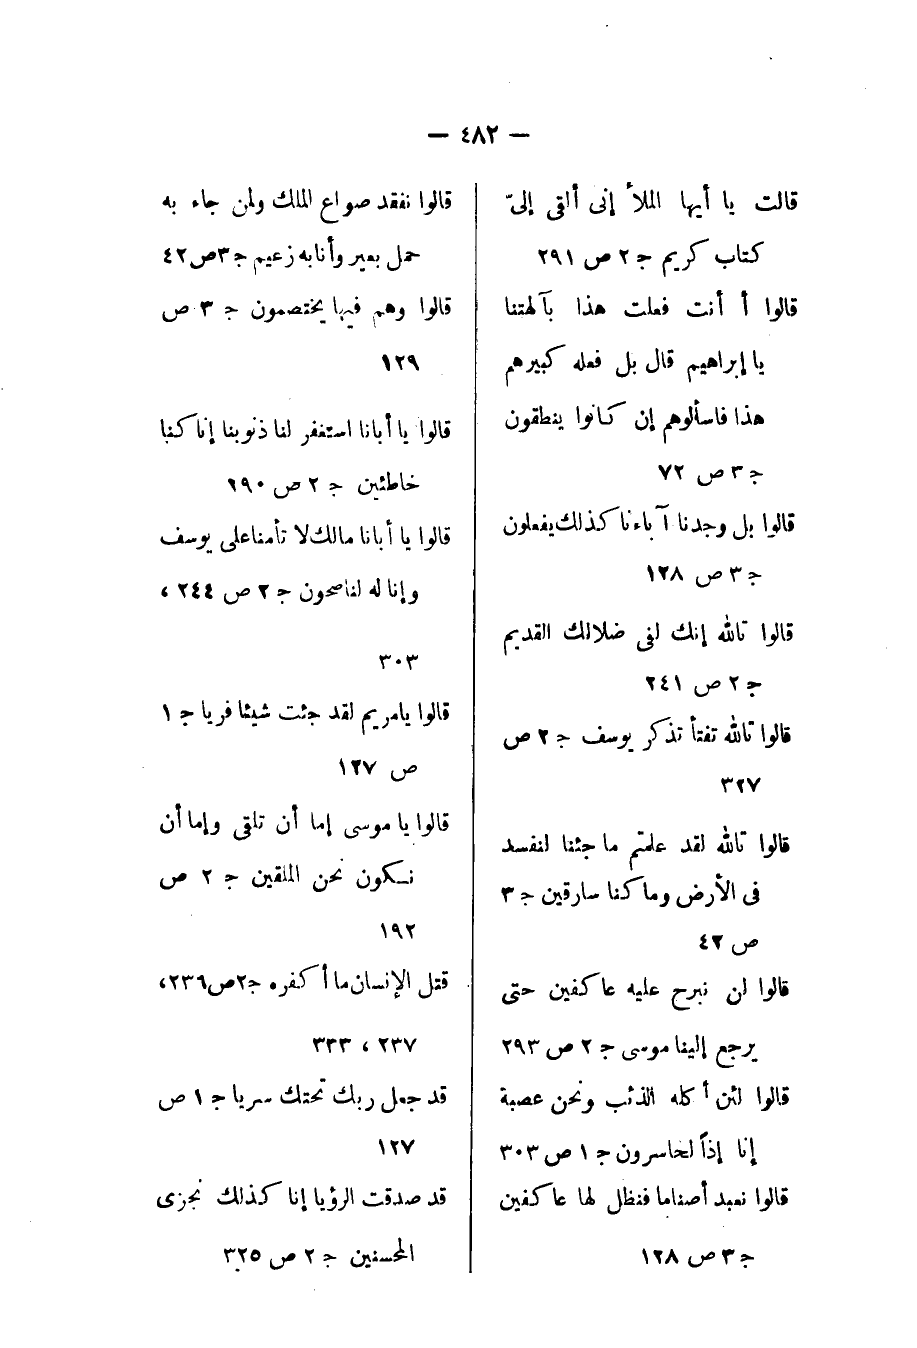 — ٤٨٢ —
قالت يا أيها الملأ إنى ألقى إلىّ
كتاب كريم ج ٢ ص ٢٩١
قالوا أ أنت فعلت هذا بآلهتنا
يا إبراهيم قال بل فعله كبيرهم
هذا فاسألوهم إن كانوا ينطقون
ج ٣ ص ٧٢
قالوا بل وجدنا آباءنا كذلك يفعلون
ج ٣ ص ١٢٨
قالوا تالله إنك لفى ضلالك القديم
ج ٢ ص ٢٤١
قالوا تالله تفتأ تذكر يوسف ج ٢ ص
٣٢٧
قالوا تالله لقد علمتم ما جئنا لنفسد
فى الأرض وما كنا سارقين ج ٣
ص ٤٢
قالوا لن نبرح عليه عاكفين حتى
يرجع إلينا موسى ج ٢ ص ٢٩٣
قالوا لئن أكله الذئب ونحن عصبة
إنا إذاً لخاسرون ج ١ ص ٣٠٣
قالوا نعبد أصناما فنظل لها عاكفين
ج ٣ ص ١٢٨
قالوا نفقد صواع الملك ولمن جاء به
حمل بعير وأنا به زعيم ج ٣ ص ٤٢
قالوا وهم فيها يختصمون ج ٣ ص
١٢٩
قالوا يا أبانا استغفر لنا ذنوبنا إنا كنا
خاطئين ج ٢ ص ١٩٠
قالوا يا أبانا مالك لا تأمنا على يوسف
وإنا له لناصحون ج ٢ ص ٢٤٤ ،
٣٠٣
قالوا يا مريم لقد جئت شيئا فريا ج ١
ص ١٢٧
قالوا يا موسى إما أن تلقى وإما أن
نكون نحن الملقين ج ٢ ص
١٩٢
قتل الإنسان ما أكفره ج ٢ ص ٢٣٦،
٢٣٧ ، ٣٣٣
قد جعل ربك تحتك سريا ج ١ ص
١٢٧
قد صدقت الرؤيا إنا كذلك نجزى
المحسنين ج ٢ ص ٣٢٥